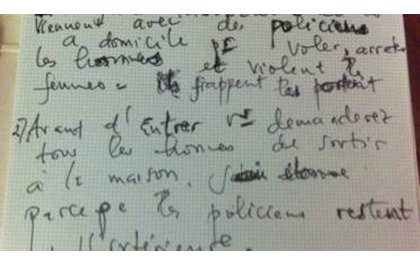 viennent avec des policiers
à domicile pr voler, arrêter
les hommes et violent les
femmes. Ils frappent les
2) Avant d'Entrer vs demanderez
tous les hommes de sortir
à la maison,
parceque les policiers restent
l'extérieure.